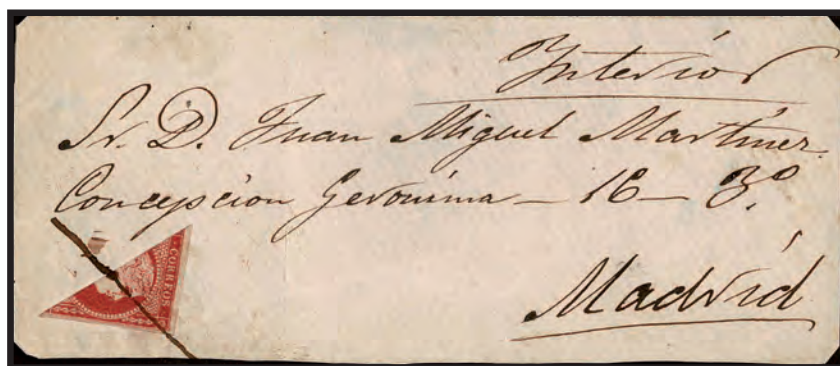 Interior
Sr. D. Juan Miguel Martinez
Concepcion Geronima – 16 – 3º
Madrid
CORREOS